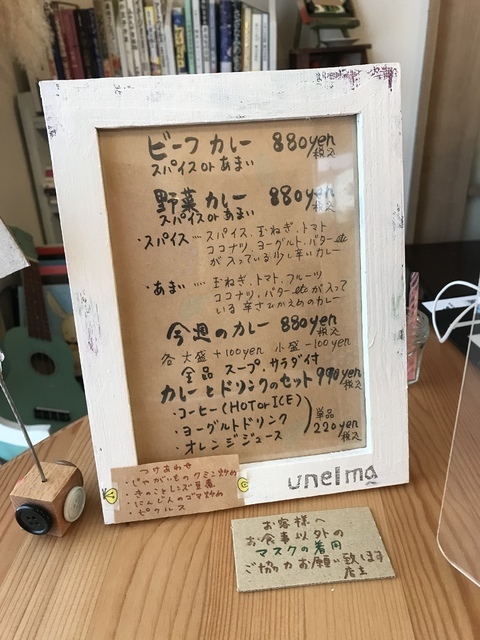 ビーフカレー 880yen 税込
スパイス or あまい
野菜カレー 880yen 税込
スパイス or あまい
・スパイス … スパイス、玉ねぎ、トマト
ココナツ、ヨーグルト、バターetc
が入っている少し辛いカレー
・あまい … 玉ねぎ、トマト、フルーツ
ココナツ、バターetcが入って
いる辛さひかえめのカレー
今週のカレー 880yen 税込
各 大盛+100yen 小盛-100yen
全品 スープ、サラダ付
カレーとドリンクのセット 990yen 税込
・コーヒー(HOT or ICE)
・ヨーグルトドリンク
・オレンジジュース
単品
220yen
税込
つけあわせ
・じゃがいものクミン炒め
・きのことレンズ豆煮
・にんじんのゴマ炒め
・ピクルス
unelma
お客様へ
お食事以外の
マスクの着用
ご協力お願い致します
店主